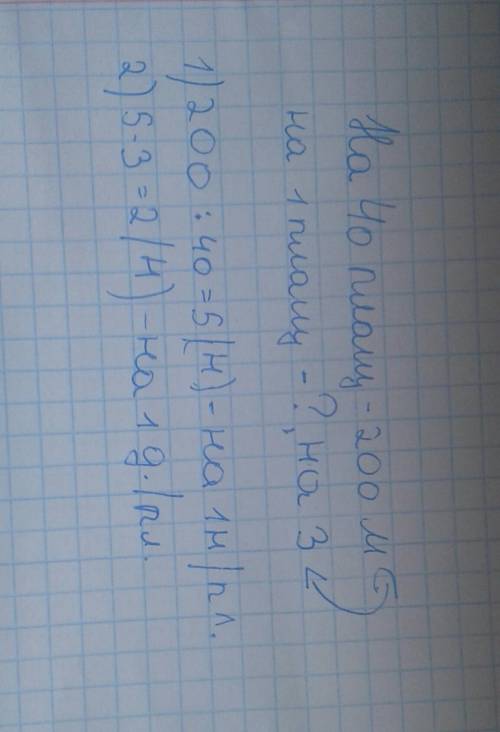 На 40 плащ - 200 м
на 1 плащ - ?, на 3 <
1) 200 : 40 = 5 (м) - на 1 м/пл.
2) 5 - 3 = 2 (м) - на 1 д./пл.